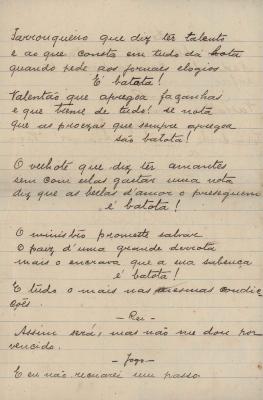 Sarrouqueiro que diz ter talento
e ao que consta em tudo dá bota
quando pede aos jornaes elogios
É batota!
Valentão que apregoa façanhas
e que treme de tudo! se nota
que as proezas que sempre apregoa
são batota!
O velhote que diz ter amantes
sem com elas gastar uma nota
diz que as bellas d'amor o perseguem
é batota!
O ministrio promette salvar
O paiz d'uma grande derrota
mais o encrava que a sua sabença
é batota!
E tudo o mais nas mesmas condic
ções.
- Rei -
Assim será, mas não me dou por
vencido.
- Jogo -
E eu não recuarei um passo